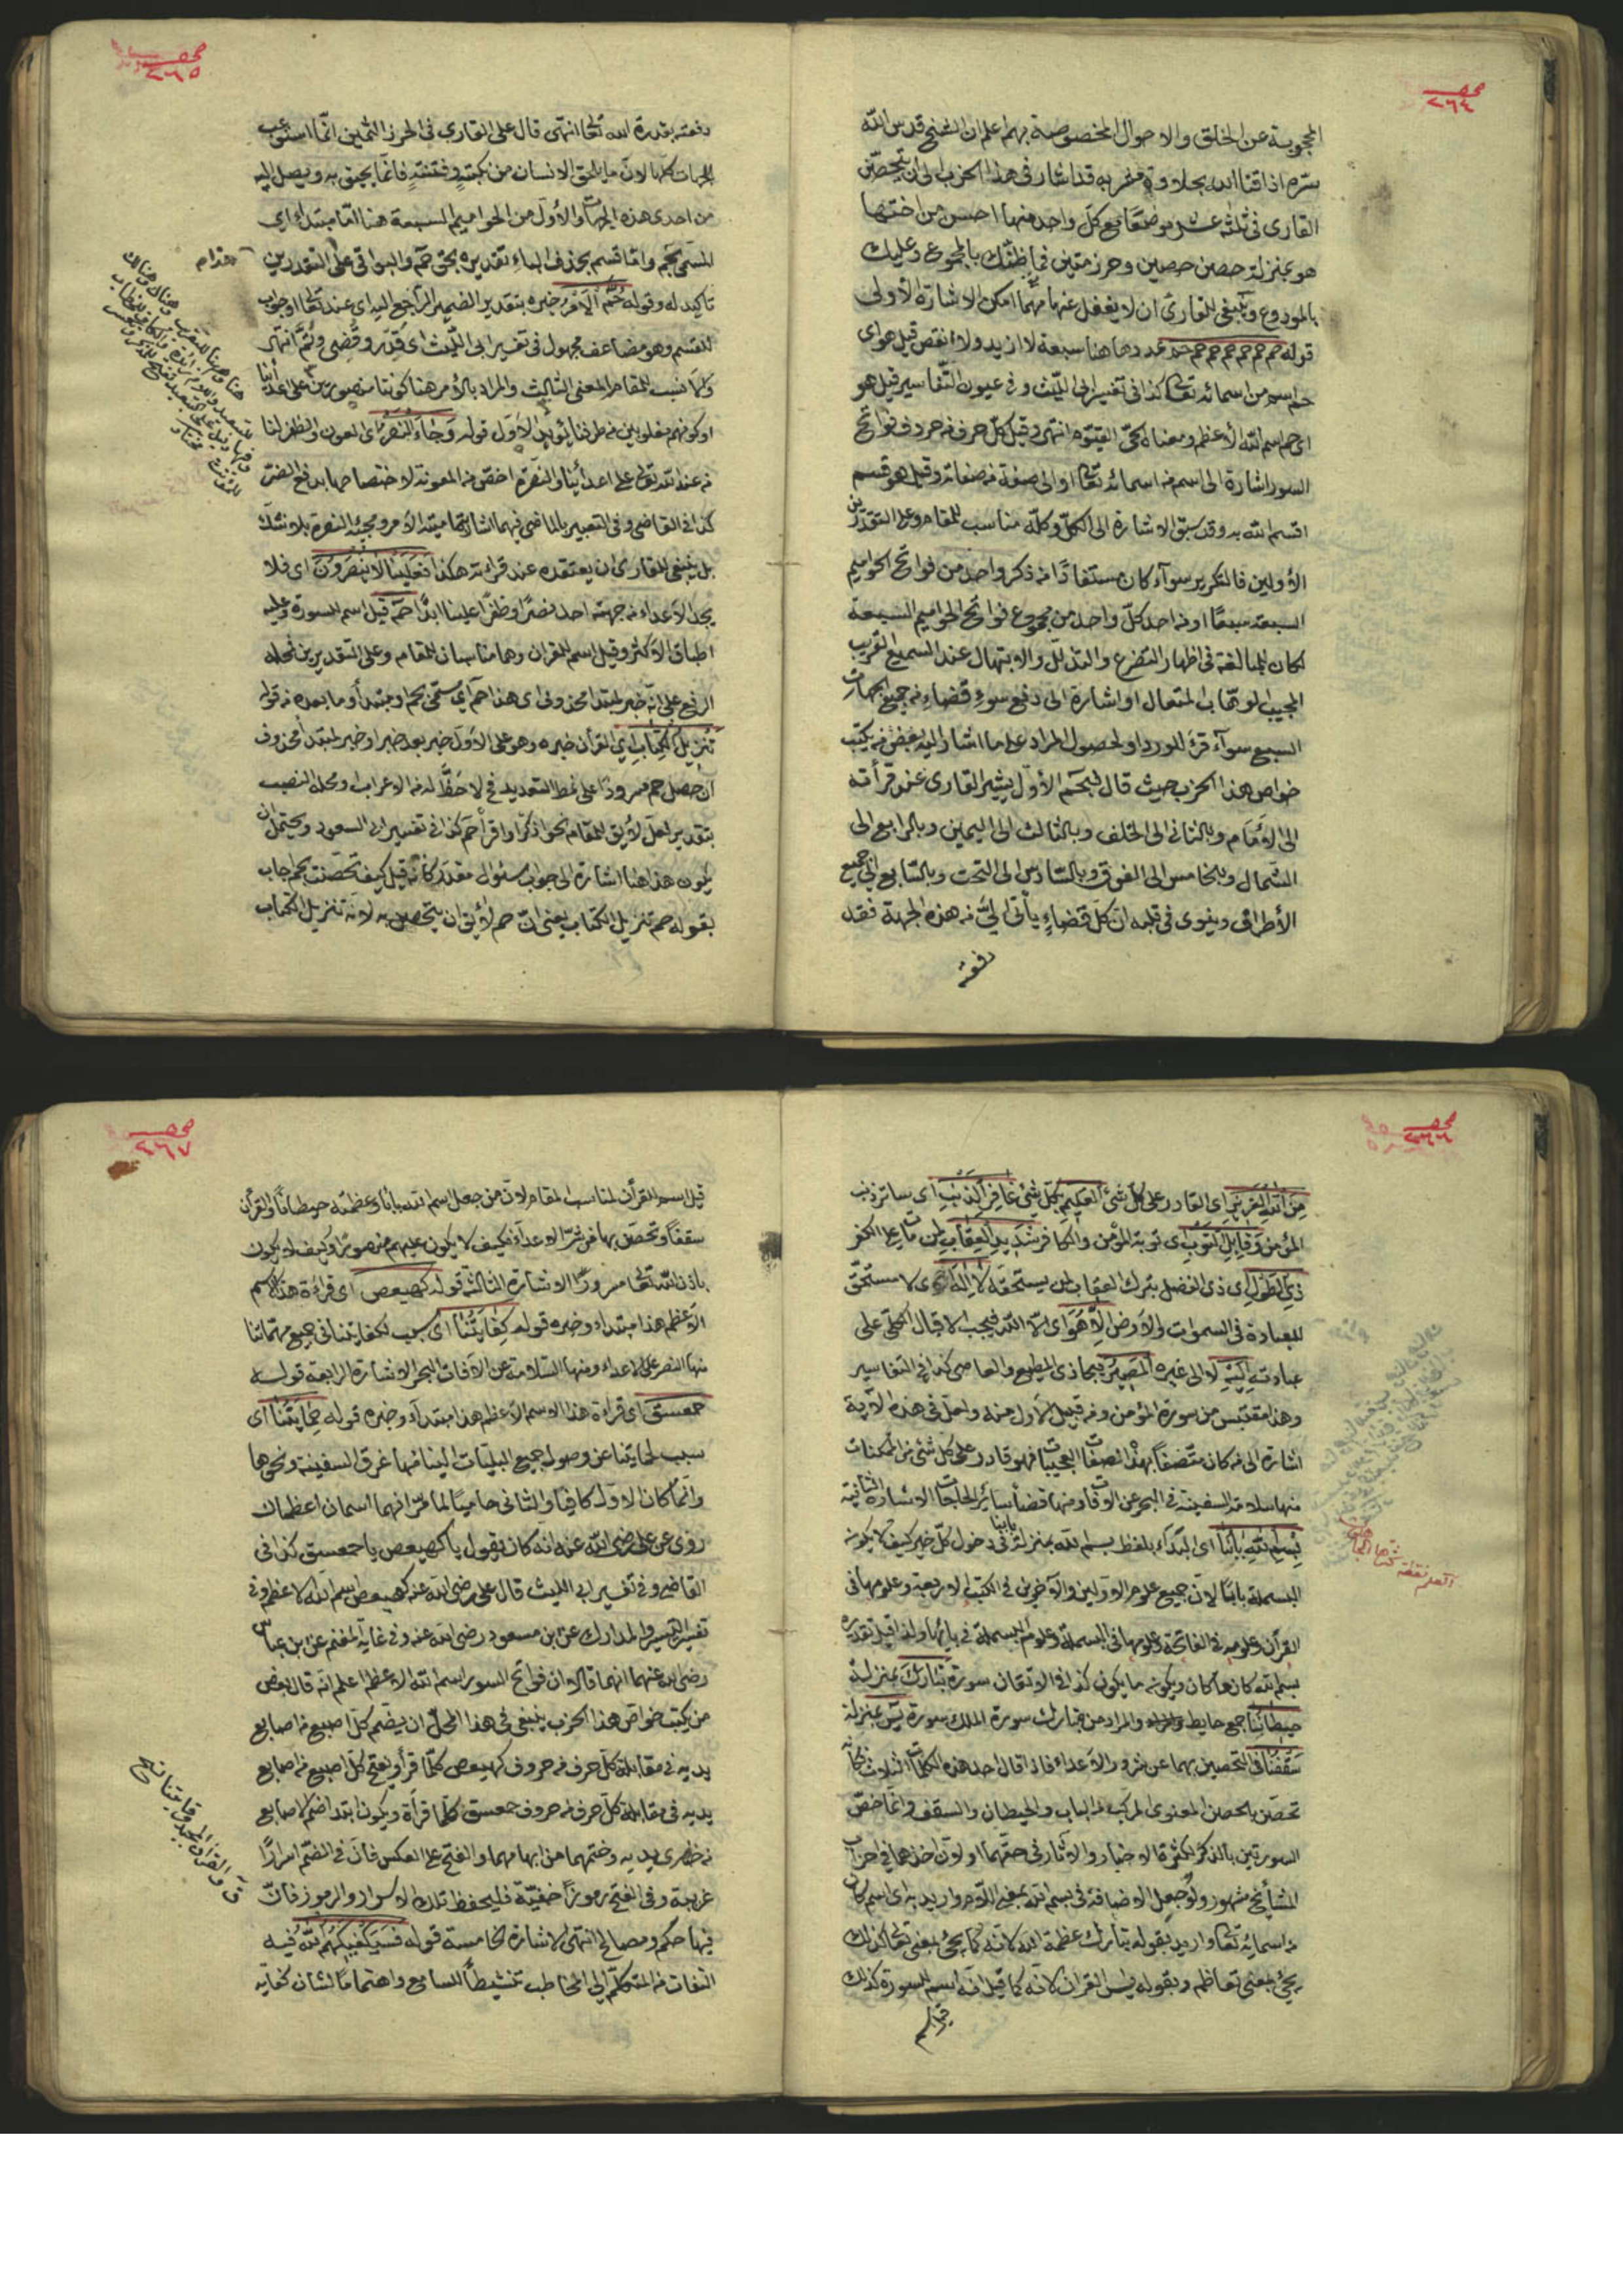 صحـ
٢٦٤
المحجوبة عن الخلق والاحوال المخصوصة بهم اعلم ان الشيخ قدس الله
سره اذاقنا الله بحلاوة مشربه قد اشار في هذا الحزب الى ان يتحصّن
القارى فى ثلثة عشر موضعًا مع كلّ واحد منها احسن من اختها
هو بمنزلة حصن حصين وحرز متين فما ظنّك بالمجموع وعليك
بالمودوع وينبغى للقارى ان لا يغفل عنها مهما امكن الاشارة الأولى
قوله حم حم حم حم حم حم حم عددها هنا سبعة لا ازيد ولا انقص قيل هو اى
حم اسم من اسمائه تعالى كذا فى تفسير ابى الليّث وفى عيون التّفاسير قيل هو
اى حم اسم الله الأعظم ومعناه الحىّ القيّوم انتهى وقيل كلّ حرف من حروف فواتح
السور اشارة الى اسم من اسمائه تعالى او الى صفة من صفاته وقيل هو قسم
اقسم الله به وقد سبق الاشارة الى الكلّ وكلّه مناسب للمقام وعلى التقديرين
الأولين فالتكرير سوآء كان مستفادًا من ذكر واحد من فواتح الحواميم
السبعة سبعًا او من احد كلّ واحد من مجموع فواتح الحواميم السبعة
لكان للمبالغة فى اظهار التضرع والتذلّل والابتهال عند السميع القريب
المجيب الوهّاب المتعال او اشارة الى دفع سوء قضاء من جميع الجهات
السبع سوآء قرئ للورد او لحصول المراد على ما اشار اليه بعض من يكتب
خواص هذا الحزب حيث قال فبحم الأوّل يشير القارى عند قرأته
الى الأمام وبالثانى الى الخلف وبالثالث الى اليمين وبالرابع الى
الشمال وبالخامس الى الفوق وبالسّادس الى التحت وبالسّابع الى جميع
الأطراف وينوى فى قلبه انّ كلّ قضاءٍ يأتى الىّ من هذه الجهة فقد
دفعته
صحـ
٢٦٥
دفعته بقدرة الله تعالى انتهى قال على القارى فى الحرز الثمين انّما استوعب
الجهات كلّها لانّ ما يلحق الانسان من نكبةٍ وفتنةٍ فانّما يحيق به ويصل اليه
من احدى هذه الجهات والأول من الحواميم السبعة هنا امّا مبتدا اى
المسمّى بحم وامّا قسم بحذف الباء تقديره بحق حم والبواقى على التقديرين
تاكيد له وقوله حُمَّ الْأَمْرُ خبره بتقدير الضمير الراجع اليه اى عند تعالى او جواب
للقسم وهو مضاعف مجهول فى تفسير ابى الليّث اى قُدّر وقُضى وتُمّ انتهى
والأنسب للمقام المعنى الثالث والمراد بالأمر هنا كوننا منصورين على اعدائنا
او كونهم مغلوبين من طرفنا ليؤيد الأوّل قوله وَجَاءَ النَّصْرُ اى العون والظفر لنا
من عند الله تعالى على اعدآئنا والنصرة اخصّ من المعونة لاختصاصها بدفع الضرّ
كذا فى القاضى وفى التعبير بالماضى فيهما اشارة تماميّة الأمر ومجئ النصرة بلا شكّ
بل ينبغى للقارى ان يعتقده عند قرائته هكذا فَعَلَيْنَا لَا يُنْصَرُونَ اى فلا
يجد الأعداء من جهته احد نصرًا وظفرًا علينا ابدًا حم قيل اسم السورة وعليه
اطباق الأكثر وقيل اسم القران وهما مناسبان للمقام وعلى التقديرين فمحلّه
الرفع على انّه خبر لمبتدا محذوف اى هذا حم اى مسمّى بحم او مبتدأ وما بعده من قوله
تَنْزِيلُ الْكِتَابِ اى القرأن خبره وهو على الأوّل خبر بعد خبر او خبر لمبتدأ محذوف
ان جعل حم مسرودًا على نمط التعديد فح لا حظّ له من الاعراب او محلّه النصب
بتقدير فعل لايق للمقام نحو اذكر او اقرأ حم كذا فى تفسير ابى السعود ويحتمل ان
يكون هذا هنا اشارة الى جواب سئوال مقدر كأنه قيل كيف تحصّنت بحم اجاب
بقوله حم تنزيل الكتاب يعنى انّ حم لأيق ان يتحصن به لانه تنزيل الكتاب
صحـ
٢٦٦
مِنَ اللهِ الْعَزِيزِ اى القادر على كلّ شئ الْعَلِيمِ بكلّ شئ غَافِرِ الذَّنْبِ اى ساتر ذنب
المؤمن وَقَابِلِ التَّوْبِ اى توبة المؤمن والكافر شَدِيدِ الْعِقَابِ لمن مات على الكفر
ذِى الطَّوْلِ اى ذى الفضل بترك العقاب لمن يستحقه لَا إِلٰهَ اى لا مستحقّ
للعبادة فى السموات والأرض إِلَّا هُوَ اى الّا الله فيجب الاقبال الكلّى على
عبادته إِلَيْهِ لا الى غيره الْمَصِيرُ فيجازى المطيع والعاصى كذا فى التفاسير
وهذا مقتبس من سورة المؤمن ومن قبيل الأول منه ولعلّ فى هذه الآية
اشارة الى من كان متّصفًا بهذه الصفات العجيبات فهو قادر على كلّ شئ من الممكنات
منها سلامة السفينة فى البحر عن الآفات ومنها قضاء سائر الحاجات الاشارة الثانية
بِسْمِ اللهِ بَابُنَا اى ابتدآء بلفظ بسم الله بمنزلة بابنا فى دخول كلّ خير كيف لا يكون
البسملة بابًا لانّ جميع علوم الاوّلين والآخرين فى الكتب الاربعة وعلومها فى
القرآن وعلومه فى الفاتحة وعلومها فى البسملة وعلوم البسملة فى بائها ولذا قيل تقديره
بسم الله كان ما كان ويكون ما يكون كذا فى الاتقان سورة تَبَارَكَ بمنزلة
حِيطَانُنَا جمع حايط والمراد من تبارك سورة الملك سورة يٰسٓ بمنزلة
سَقْفُنَا فى التحصين بهما عن شرور الأعداء فاذا قال احد هذه الكلمات الثلاث فكأنه
تحصّن بالحصن المعنوى المركّب من الباب والحيطان والسقف وانّما خصّ
السورتين بالذكر لكثرة الاخبار والآثار فى حقّهما او لانّ اخذهما فى احزاب
المشآئخ مشهور ولو جعل الاضافة فى بسم الله بمعنى اللّام واريد به اى اسم كان
من اسمائه تعالى واريد بقوله تبارك عظمة الله لانه كما يجئ بمعنى تعالى كذلك
يجئ بمعنى تعاظم وبقوله يس القران لانه كما قيل انه اسم للسورة كذلك
قيل اسم
صحـ
٢٦٧
قيل اسم القرأن لناسب المقام لانّ من جعل اسم الله بابًا وعظمته حيطانًا والقرأن
سقفًا وتحصّن بها من شرّ الاعدآء فكيف لا يكون عليهم منصورًا وكيف لا يكون
باذن الله تعالى مسرورًا الاشارة الثالثة قوله كهيعص اى قراءة هذا الاسم
الأعظم هذا مبتداء وخبره قوله كِفَايَتُنَا اى سبب لكفايتنا فى جميع مهمّاتنا
منها النصر على الاعداء ومنها السّلامة عن الآفات البحر الاشارة الرابعة قوله
حمعسق اى قراءة هذا الاسم الأعظم هذا مبتدآء وخبره قوله حِمَايَتُنَا اى
سبب لحمايتنا عن وصول جميع البليّات الينا منها غرق السفينة ونحوها
وانّما كان الاوّل كافيًا والثانى حاميًا لما مرّ انّهما اسمان اعظمان
روى عن على رضى الله عنه انه كان يقول يا كهيعص يا حمعسق كذا فى
القاضى وفى تفسير ابى الليث قال على رضى الله عنه كهيعص اسم الله الاعظم وفى
تفسير التيسير والمدارك عن ابن مسعود رضى الله عنه وفى غاية المغنم عن ابن عبّاس
رضى الله عنهما انهما قالا ان فواتح السور اسم الله الاعظم اعلم انّه قال بعض
من يكتب خواص هذا الحزب ينبغى فى هذا المحلّ ان يضمّ كلّ اصبع من اصابع
يديه فى مقابلة كلّ حرف من حروف كهيعص كلّما قرأ ويفتح كلّ اصبع من اصابع
يديه فى مقابلة كلّ حرف من حروف حمعسق كلّما قرأه ويكون ابتدا ضم الاصابع
من خنصرى يديه وختمهما من ابهامهما والفتح على العكس فانّ فى الضّم اسرارًا
غريبة وفى الفتح رموزًا خفيّة فليحفظ تلك الاسرار والرموز فانّ
فيها حكم ومصالح انتهى الاشارة الخامسة قوله فَسَيَكْفِيكَهُمُ اللهُ فيه
التفات من المتكلّم الى المخاطب تنشيطًا للسامع واهتمامًا لشان كفاية
ق والقرآن المجيد وقايتنا صح